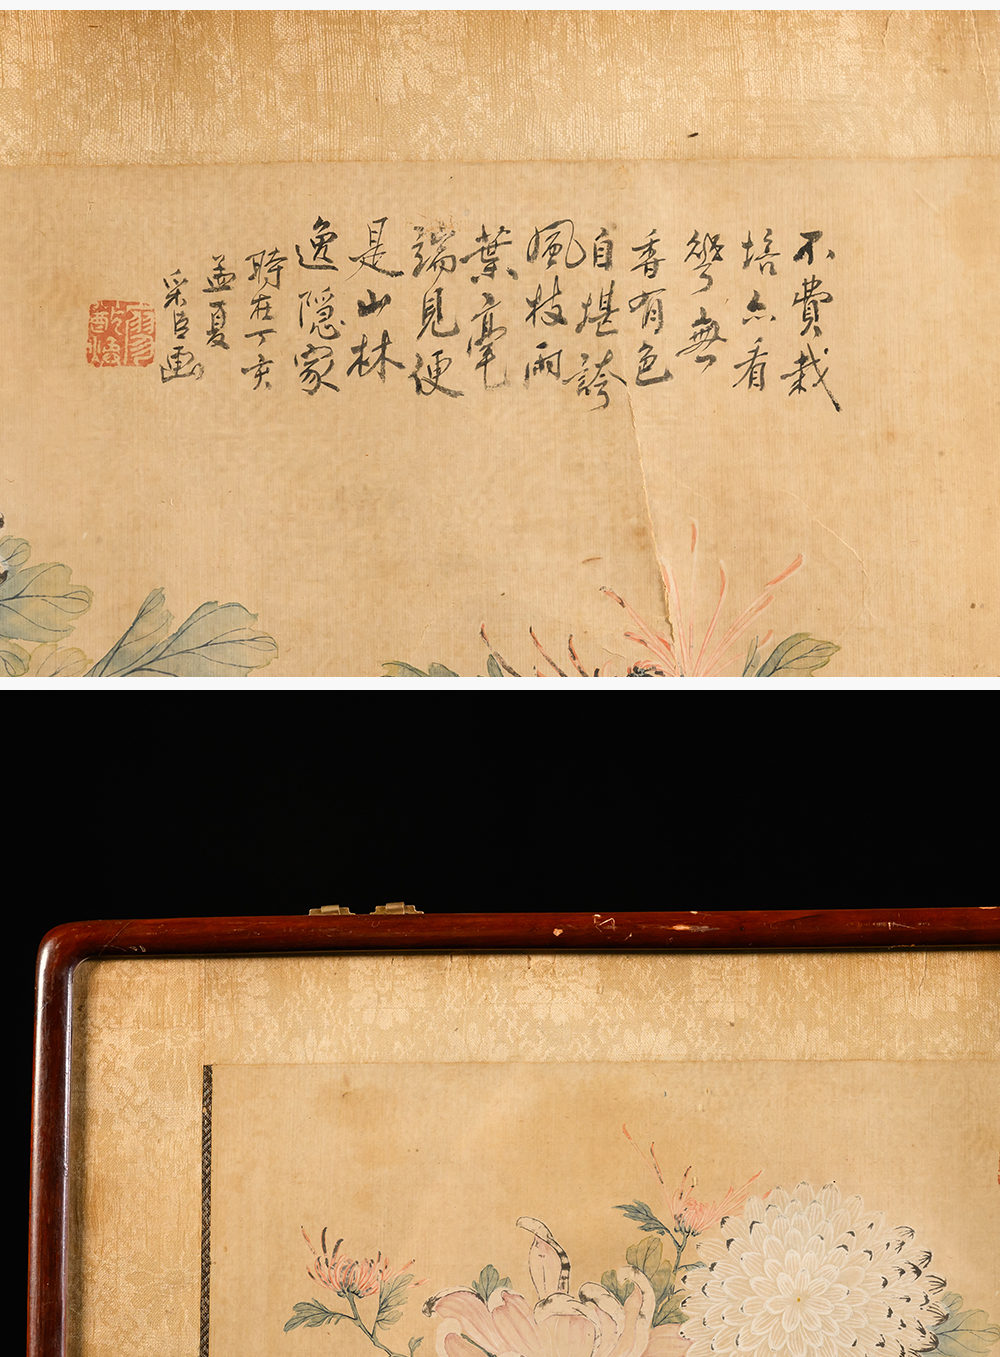 不費栽
培亦看
無
香有色
自堪誇
風枝雨
葉毫
端見便
是山林
逸隱家
時在丁亥
孟夏
采臣画